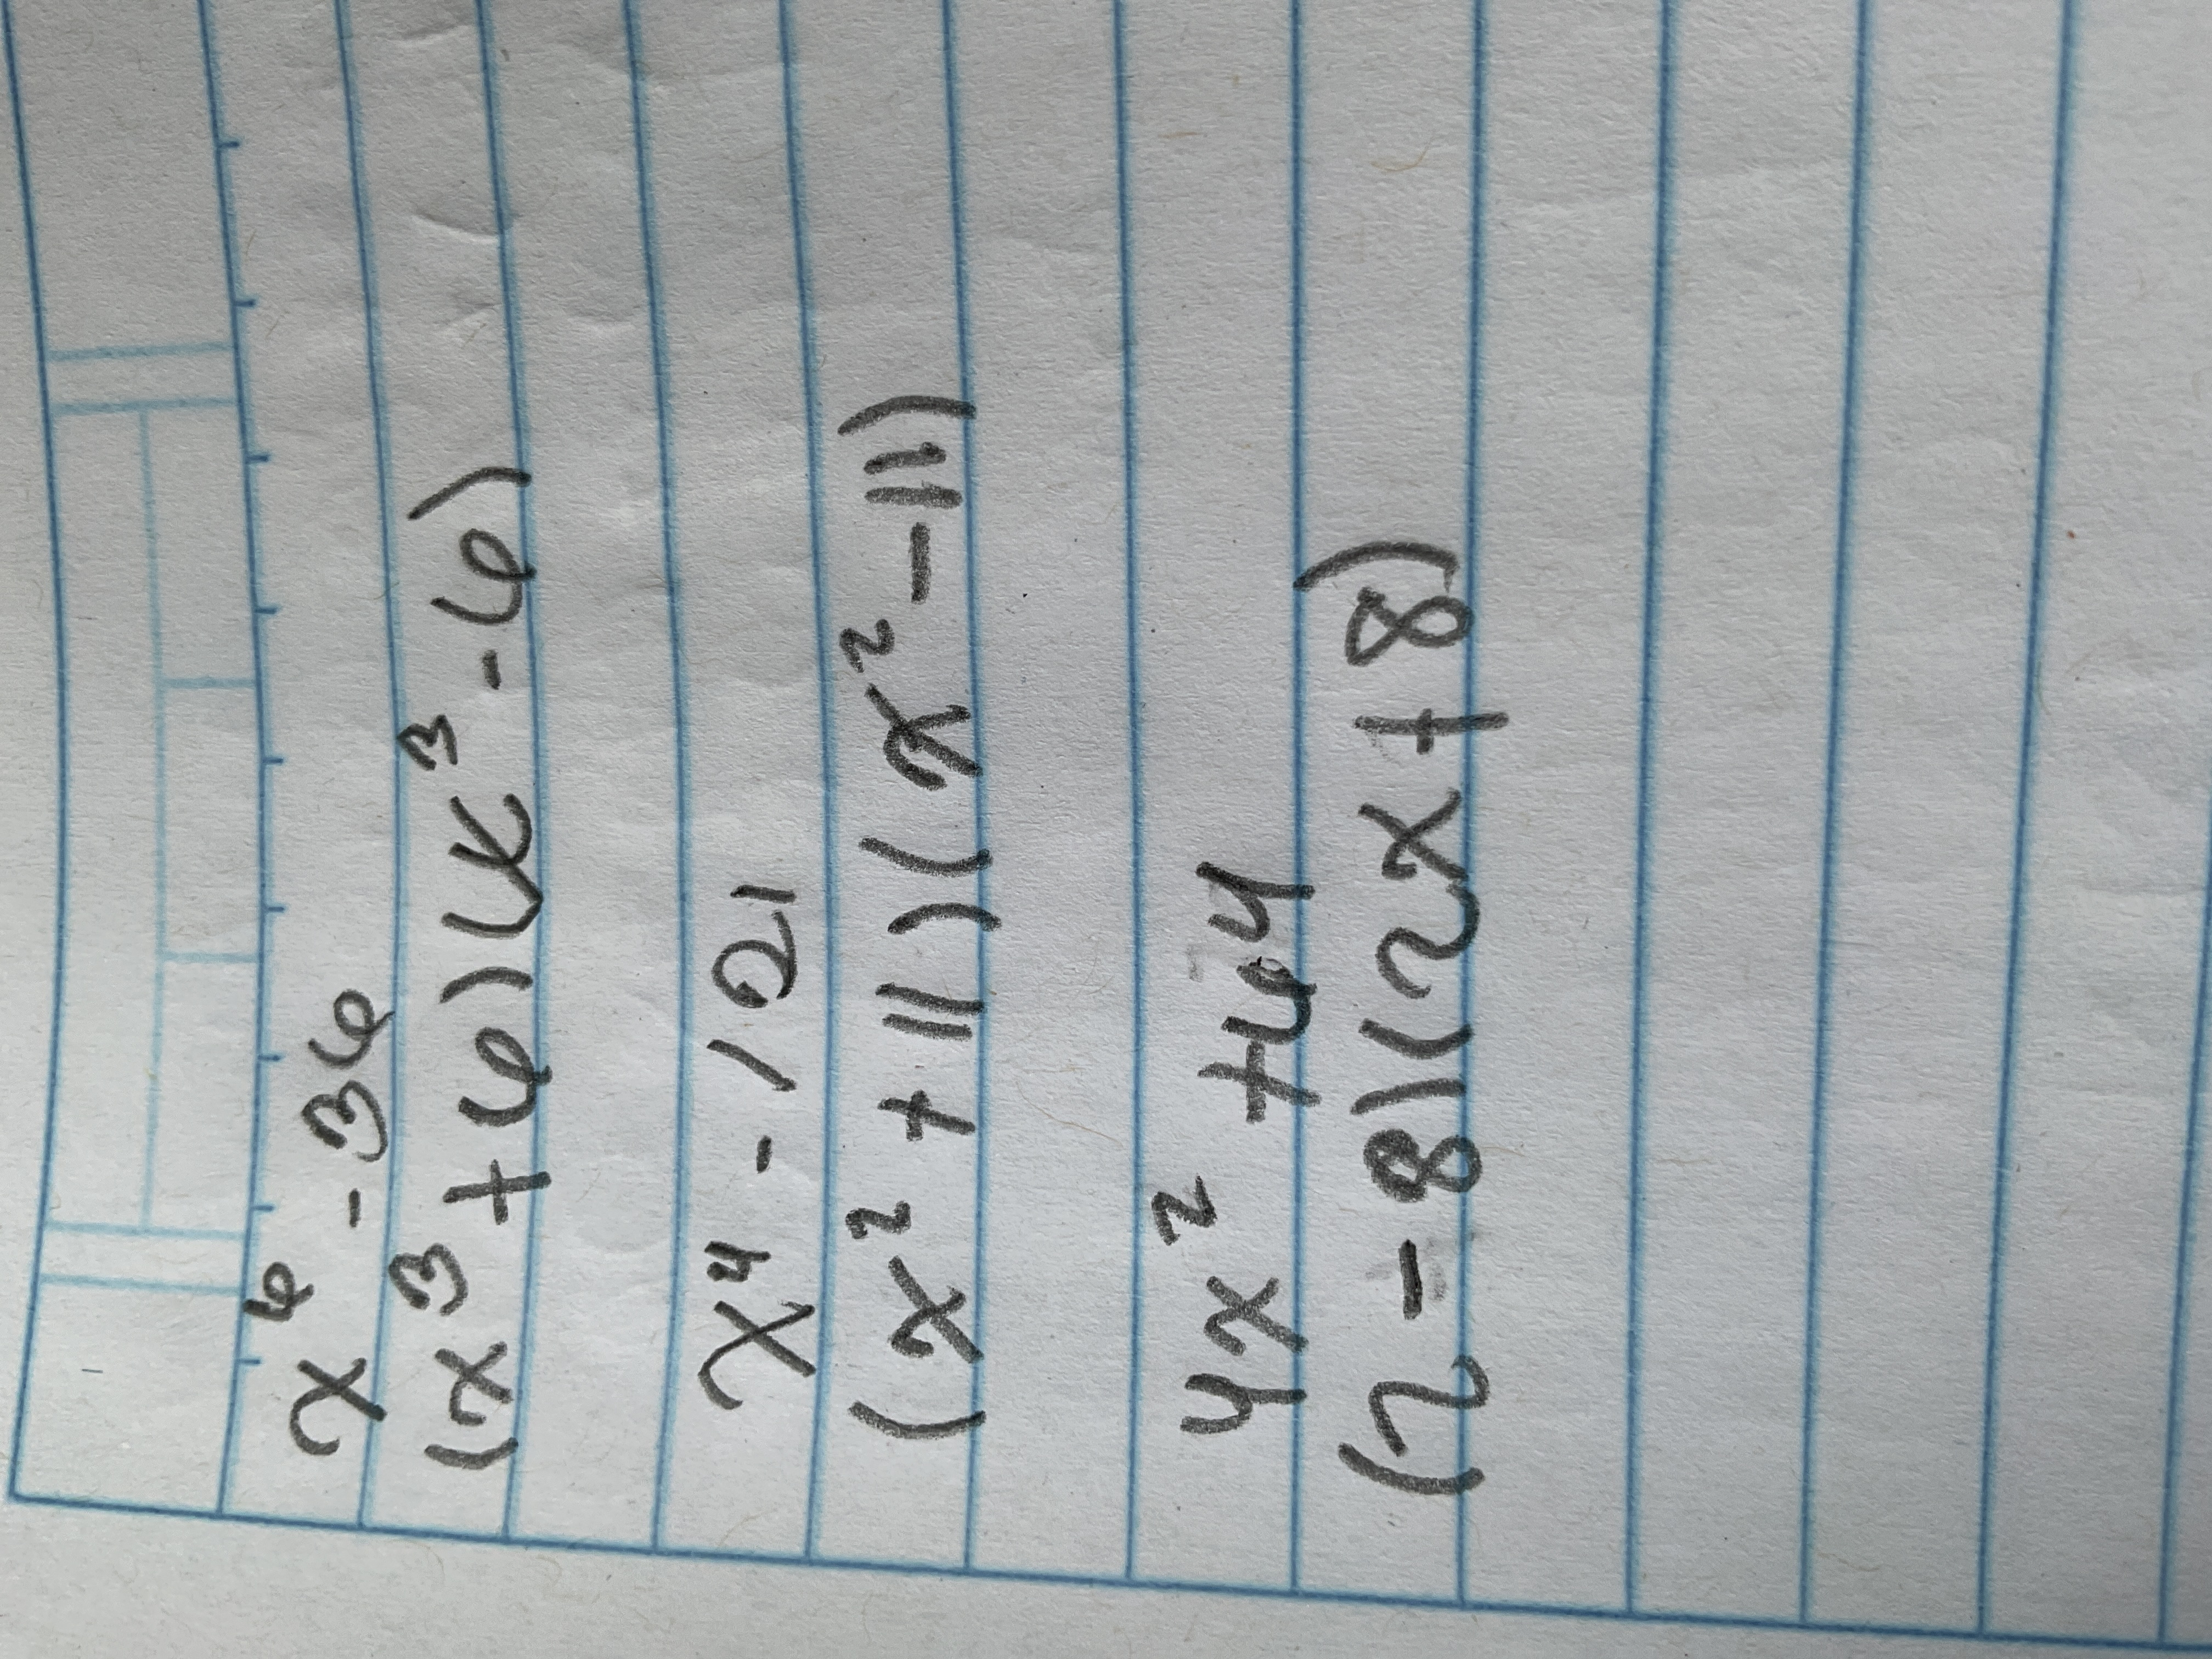 x⁶ - 36
(x³ + 6)(x³ - 6)
x⁴ - 121
(x² + 11)(x² - 11)
4x² + 64
(2 - 8)(2x + 8)